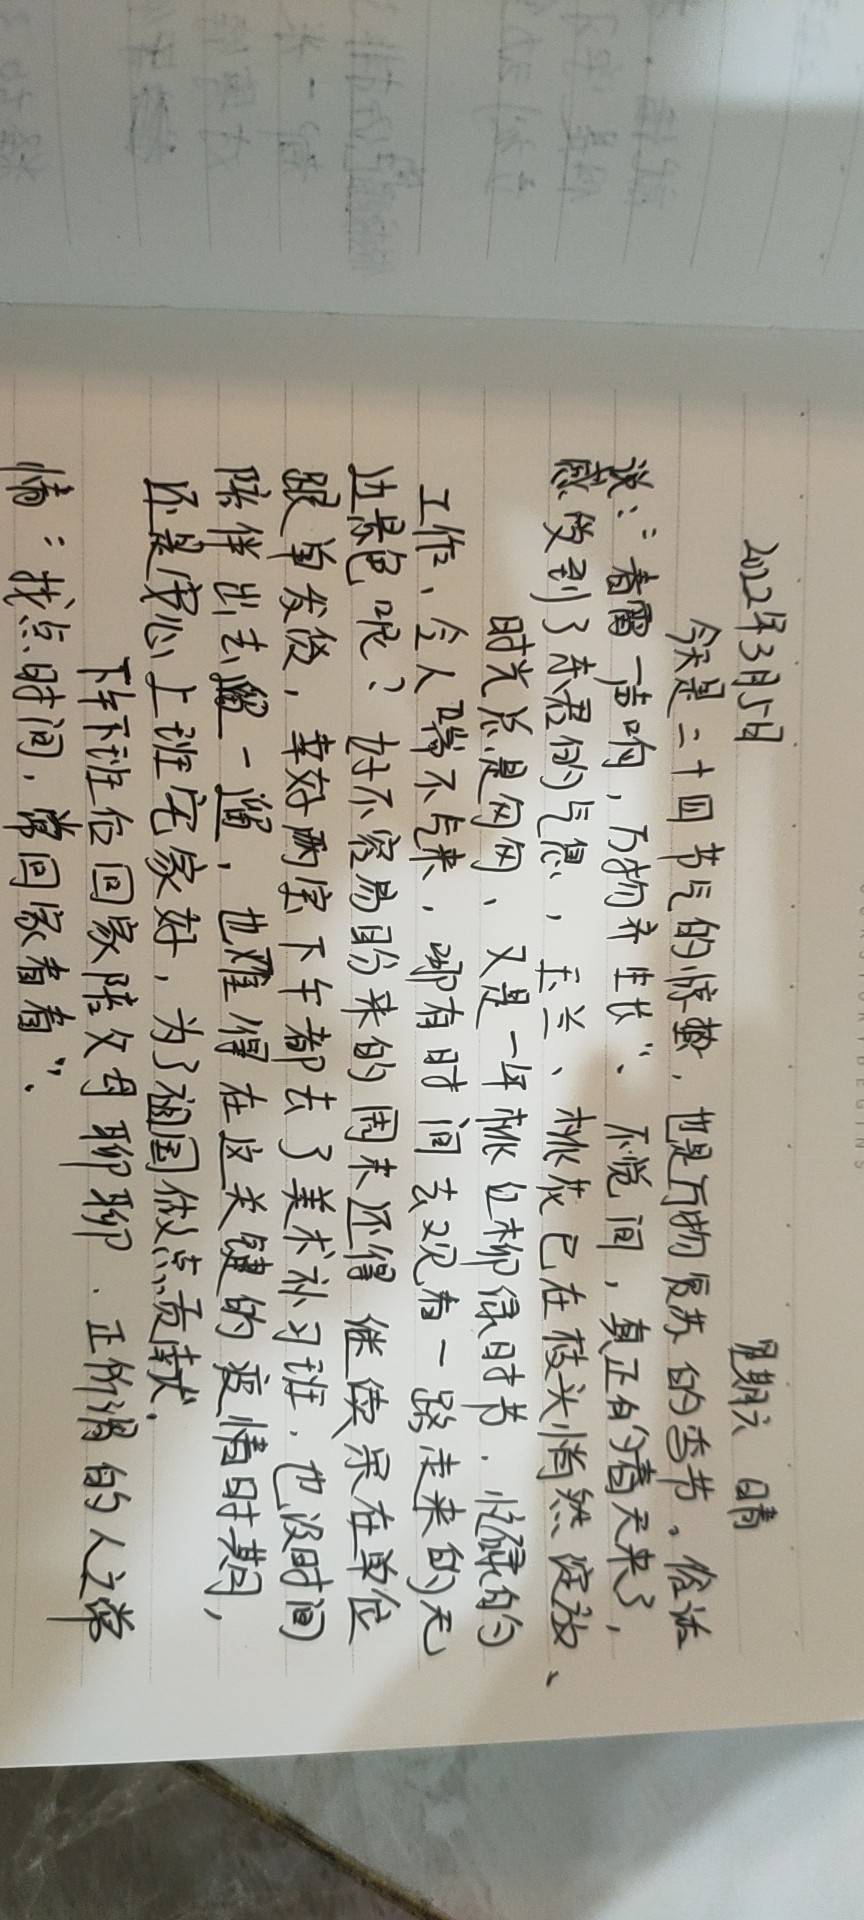 2022年3月5日 星期六 晴
今天是二十四节气的惊蛰，也是万物复苏的季节。俗话
说："春雷一声响，万物齐生长"、不觉间，真正的春天来了，
感受到了东君的气息，玉兰、桃花已在枝头悄然绽放、
时光总是匆匆、又是一年桃红柳绿时节．忙碌的
工作、令人喘不气来，哪有时间去观看一路走来的无
边景色呢？好不容易盼来的周末还得继续呆在单位
跟单发货，幸好两宝下午都去了美术补习班．也没时间
陪伴出去遛一遛，也难得在这关键的疫情时期，
还是安心上班宅家好，为了祖国做点贡献．
下午下班后回家陪父母聊聊．正所谓的人之常
情："找点时间，常回家看看"．